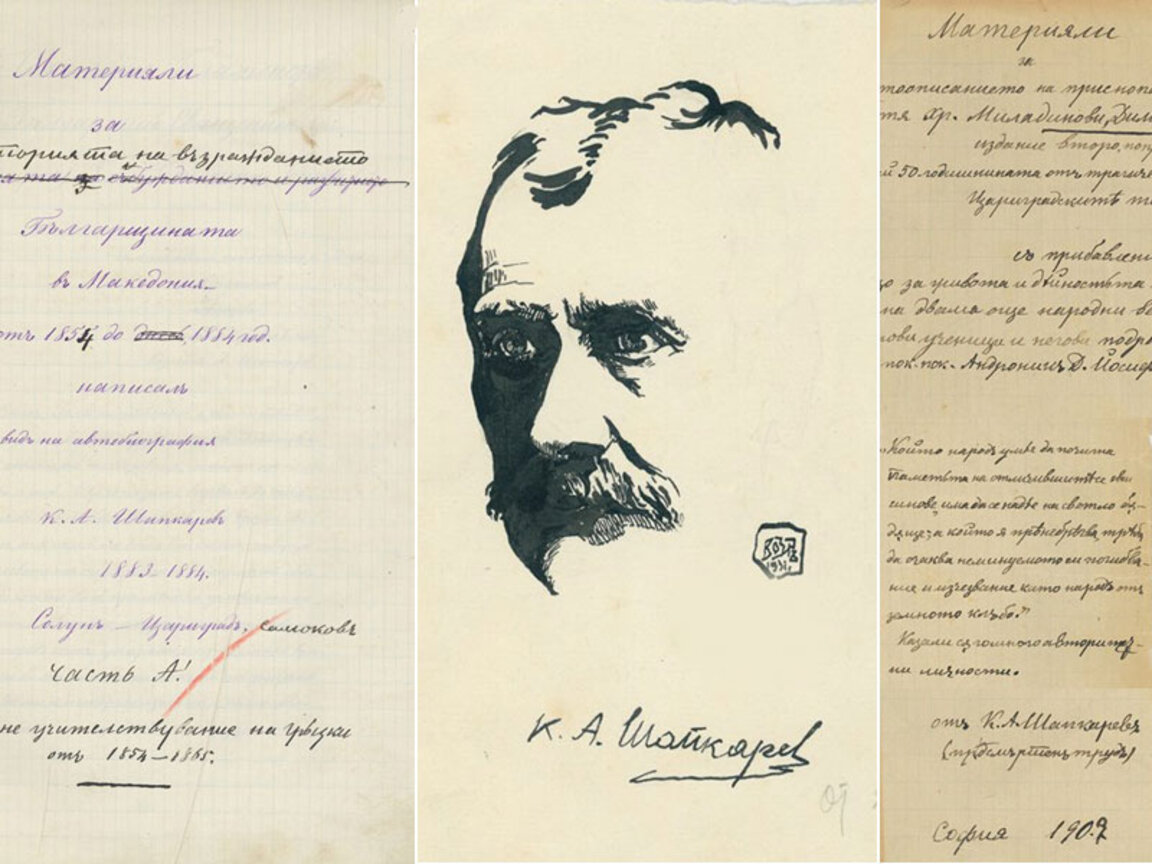 Материяли
за
торията на възражданието
Бѫлгарщината
въ Македония
отъ 1854 до 1884 год.
написалъ
видъ на автобиография
К. А. Шапкаревъ
1883-1884.
Солунъ – Цариградъ, Самоковъ
Часть А!
не учителствувание на грѣцки
отъ 1854–1865.
1931.
К. А. Шапкарев
Материяли
за
тоописанието на приснопа
тя Хр. Миладинови, Дим
издание второ, поп
й 50 годишнината отъ трагиче
Цариградскитѣ т
съ прибавлени
о за живота и дѣйностьта
на двама още народни
ови ученици и негови подр
пок. пок. Андроникъ Д. Йосиф
Който народъ умѣе да почита
паметьта на отличившитѣ се свои
синове има да се надѣе на свѣтло бѫ-
дуще; а който я прѣнебрѣгва, трѣбва
да очаква неминуемото си погибва-
ние и изчезвание като народъ отъ
земното кълбо."
Казали сѫ големи авторитет-
ни личности.
отъ К. А. Шапкаревъ
(прѣдсмъртенъ трудъ)
София 1907